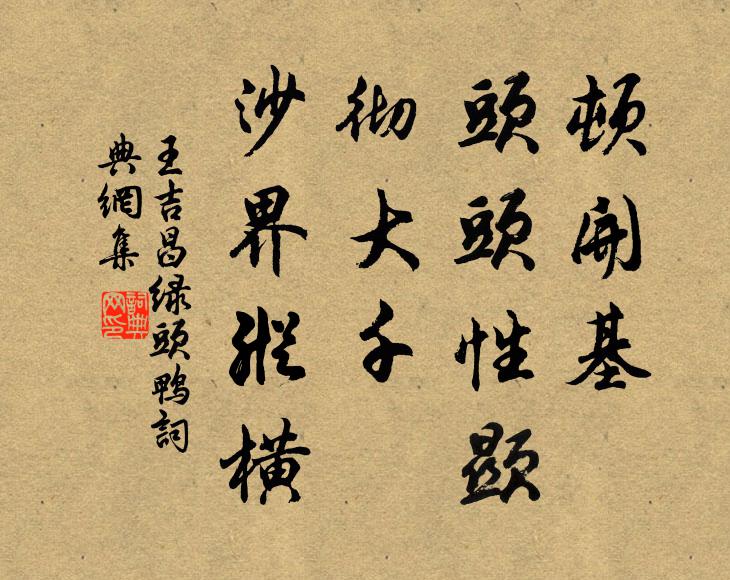 頓開基
頭頭性顯
彻大千
沙界縱橫
王吉昌绿頭鴨詞
典網集
詞典網印